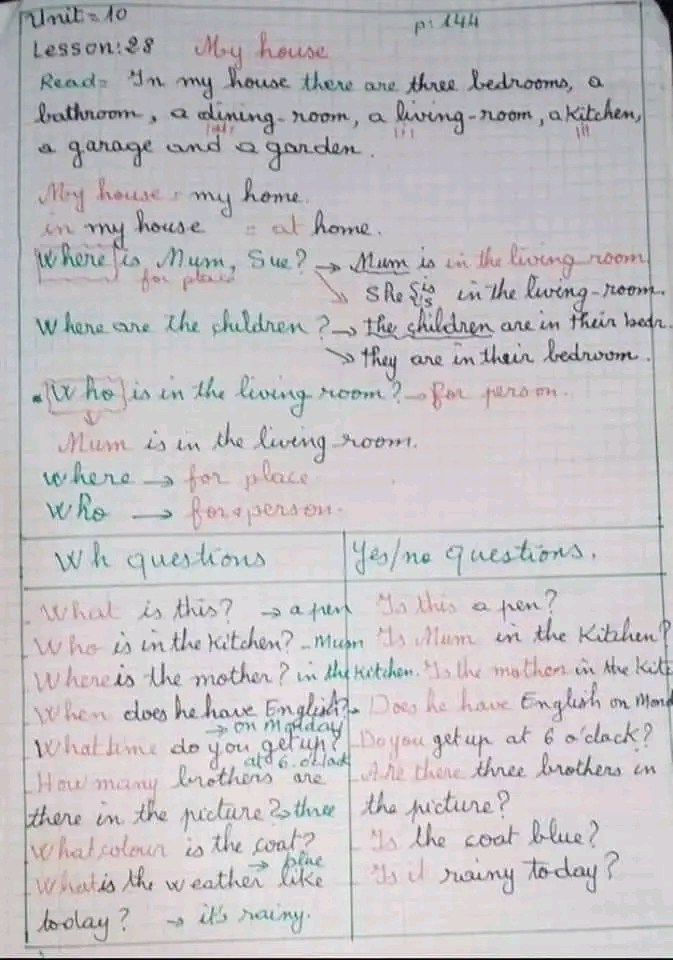 Unit = 10
p: 144
Lesson: 28 My house
Read = In my house there are three bedrooms, a
bathroom, a dining-room, a living-room, a kitchen,
a garage and a garden.
My house = my home.
in my house = at home.
Where is Mum, Sue? → Mum is in the living room
for place
She is 's in the living-room.
Where are the children? → the children are in their bedr.
→ they are in their bedroom.
. Who is in the living room? → for person.
Mum is in the living-room.
where → for place
who → for person.
Wh questions
Yes/no questions.
. What is this? → a pen
. Who is in the kitchen? - Mum
Where is the mother? in the kitchen.
. When does he have English?
→ on Monday
. What time do you get up?
at 6. o'clock
. How many brothers are
there in the picture? → three
What colour is the coat?
→ blue
. What is the weather like
today? → it's rainy.
Is this a pen?
Is Mum in the Kitchen?
Is the mother in the Kitc
. Does he have English on Mond
. Do you get up at 6 o'clock?
. Are there three brothers in
the picture?
. Is the coat blue?
. Is it rainy today?